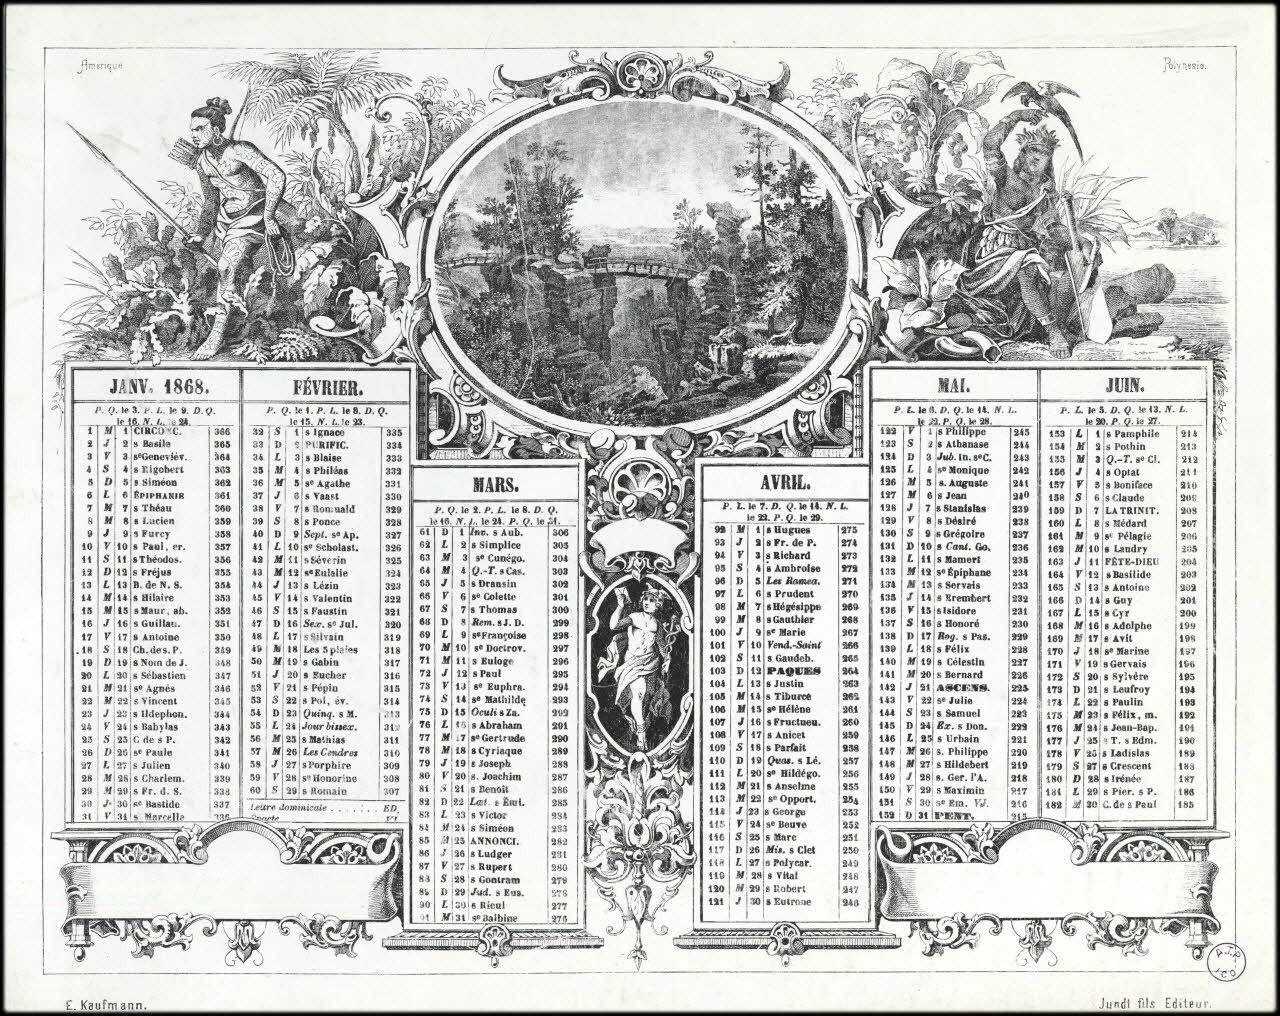 Amerique
Polynesie.
JANV. 1868.
P. Q. le 3. P. L. le 9. D. Q.
le 16. N. L. le 24.
1 M 1 CIRCONC. 366
2 J 2 s Basile 365
3 V 3 se Geneviév. 364
4 S 4 s Rigobert 363
5 D 5 s Siméon 362
6 L 6 ÉPIPHANIE 361
7 M 7 s Théau 360
8 M 8 s Lucien 359
9 J 9 s Furcy 358
10 V 10 s Paul, er. 357
11 S 11 s Théodos. 356
12 D 12 s Fréjus 355
13 L 13 B. de N. S. 354
14 M 14 s Hilaire 353
15 M 15 s Maur, ab. 352
16 J 16 s Guillau. 351
17 V 17 s Antoine 350
18 S 18 Ch. des. P. 349
19 D 19 s Nom de J. 348
20 L 20 s Sébastien 347
21 M 21 se Agnès 346
22 M 22 s Vincent 345
23 J 23 s Ildephon. 344
24 V 24 s Babylas 343
25 S 25 C. de s P. 342
26 D 26 se Paule 341
27 L 27 s Julien 340
28 M 28 s Charlem. 339
29 M 29 s Fr. d. S. 338
30 J 30 se Bastide 337
31 V 31 s Marcelle 336
FÉVRIER.
P. Q. le 1. P. L. le 8. D. Q.
le 15. N. L. le 23.
32 S 1 s Ignace 335
33 D 2 PURIFIC. 334
34 L 3 s Blaise 333
35 M 4 s Philéas 332
36 M 5 se Agathe 331
37 J 6 s Vaast 330
38 V 7 s Romuald 329
39 S 8 s Ponce 328
40 D 9 Sept. se Ap. 327
41 L 10 se Scholast. 326
42 M 11 s Séverin 325
43 M 12 se Eulalie 324
44 J 13 s Lézin 323
45 V 14 s Valentin 322
46 S 15 s Faustin 321
47 D 16 Sex. se Jul. 320
48 L 17 s Silvain 319
49 M 18 Les 5 plaies 318
50 M 19 s Gabin 317
51 J 20 s Eucher 316
52 V 21 s Pépin 315
53 S 22 s Poi, év. 314
54 D 23 Quinq. s M. 313
55 L 24 Jour bissex. 312
56 M 25 s Mathias 311
57 M 26 Les Cendres 310
58 J 27 s Porphire 309
59 V 28 se Honorine 308
60 S 29 s Romain 307
Lettre dominicale . . . . : . ED.
MARS.
P. Q. le 2. P. L. le 8. D. Q.
le 16. N. L. le 24. P. Q. le 31.
61 D 1 Inv. s Aub. 306
62 L 2 s Simplice 305
63 M 3 se Cunégo. 304
64 M 4 Q.-T. s Cas. 303
65 J 5 s Drausin 302
66 V 6 se Colette 301
67 S 7 s Thomas 300
68 D 8 Rem. s J. D. 299
69 L 9 se Françoise 298
70 M 10 se Doctrov. 297
71 M 11 s Euloge 296
72 J 12 s Paul 295
73 V 13 se Euphra. 294
74 S 14 se Mathilde 293
75 D 15 Oculi s Za. 292
76 L 16 s Abraham 291
77 M 17 se Gertrude 290
78 M 18 s Cyriaque 289
79 J 19 s Joseph 288
80 V 20 s. Joachim 287
81 S 21 s Benoît 286
82 D 22 Læt. s Émi. 285
83 L 23 s Victor 284
84 M 24 s Siméon 283
85 M 25 ANNONCI. 282
86 J 26 s Ludger 281
87 V 27 s Rupert 280
88 S 28 s Gontram 279
89 D 29 Jud. s Eus. 278
90 L 30 s Rieul 277
91 M 31 se Balbine 276
AVRIL.
P. L. le 7. D. Q. le 14. N. L.
le 22. P. Q. le 29.
92 M 1 s Hugues 275
93 J 2 s Fr. de P. 274
94 V 3 s Richard 273
95 S 4 s Ambroise 272
96 D 5 Les Ramea. 271
97 L 6 s Prudent 270
98 M 7 s Hégésippe 269
99 M 8 s Gauthier 268
100 J 9 se Marie 267
101 V 10 Vend.-Saint 266
102 S 11 s Gaudeb. 265
103 D 12 PAQUES 264
104 L 13 s Justin 263
105 M 14 s Tiburce 262
106 M 15 se Hélène 261
107 J 16 s Fructueu. 260
108 V 17 s Anicet 259
109 S 18 s Parfait 258
110 D 19 Quas. s Lé. 257
111 L 20 se Hildégo. 256
112 M 21 s Anselme 255
113 M 22 se Opport. 254
114 J 23 s George 253
115 V 24 se Beuve 252
116 S 25 s Marc 251
117 D 26 Mis. s Clet 250
118 L 27 s Polycar. 249
119 M 28 s Vital 248
120 M 29 s Robert 247
121 J 30 s Eutrone 246
MAI.
P. L. le 6. D. Q. le 14. N. L.
le 22. P. Q. le 28.
122 V 1 s Philippe 245
123 S 2 s Athanase 244
124 D 3 Jub. In. se C. 243
125 L 4 se Monique 242
126 M 5 s. Auguste 241
127 M 6 s Jean 240
128 J 7 s Stanislas 239
129 V 8 s Désiré 238
130 S 9 s Grégoire 237
131 D 10 s Cant. Go. 236
132 L 11 s Mamert 235
133 M 12 se Épiphane 234
134 M 13 s Servais 233
135 J 14 s Erembert 232
136 V 15 s Isidore 231
137 S 16 s Honoré 230
138 D 17 Rog. s Pas. 229
139 L 18 s Félix 228
140 M 19 s Célestin 227
141 M 20 s Bernard 226
142 J 21 ASCENS. 225
143 V 22 se Julie 224
144 S 23 s Samuel 223
145 D 24 Ex. s Don. 222
146 L 25 s Urbain 221
147 M 26 s. Philippe 220
148 M 27 s Hildebert 219
149 J 28 s. Ger. l'A. 218
150 V 29 s Maximin 217
151 S 30 se Em. VJ. 216
152 D 31 PENT. 215
JUIN.
P. L. le 5. D. Q. le 13. N. L.
le 20. P. Q. le 27.
153 L 1 s Pamphile 214
154 M 2 s Pothin 213
155 M 3 Q.-T. se Cl. 212
156 J 4 s Optat 211
157 V 5 s Boniface 210
158 S 6 s Claude 209
159 D 7 LA TRINIT. 208
160 L 8 s Médard 207
161 M 9 se Pélagie 206
162 M 10 s Landry 205
163 J 11 FÊTE-DIEU 204
164 V 12 s Basilide 203
165 S 13 s Antoine 202
166 D 14 s Guy 201
167 L 15 s Cyr 200
168 M 16 s Adolphe 199
169 M 17 s Avit 198
170 J 18 se Marine 197
171 V 19 s Gervais 196
172 S 20 s Sylvère 195
173 D 21 s Leufroy 194
174 L 22 s Paulin 193
175 M 23 s Félix, m. 192
176 M 24 s Jean-Bap. 191
177 J 25 s T. s Edm. 190
178 V 26 s Ladislas 189
179 S 27 s Crescent 188
180 D 28 s Irénée 187
181 L 29 s Pier. s P. 186
182 M 30 C. de s Paul 185
E. Kaufmann.
Jundt fils Editeur.